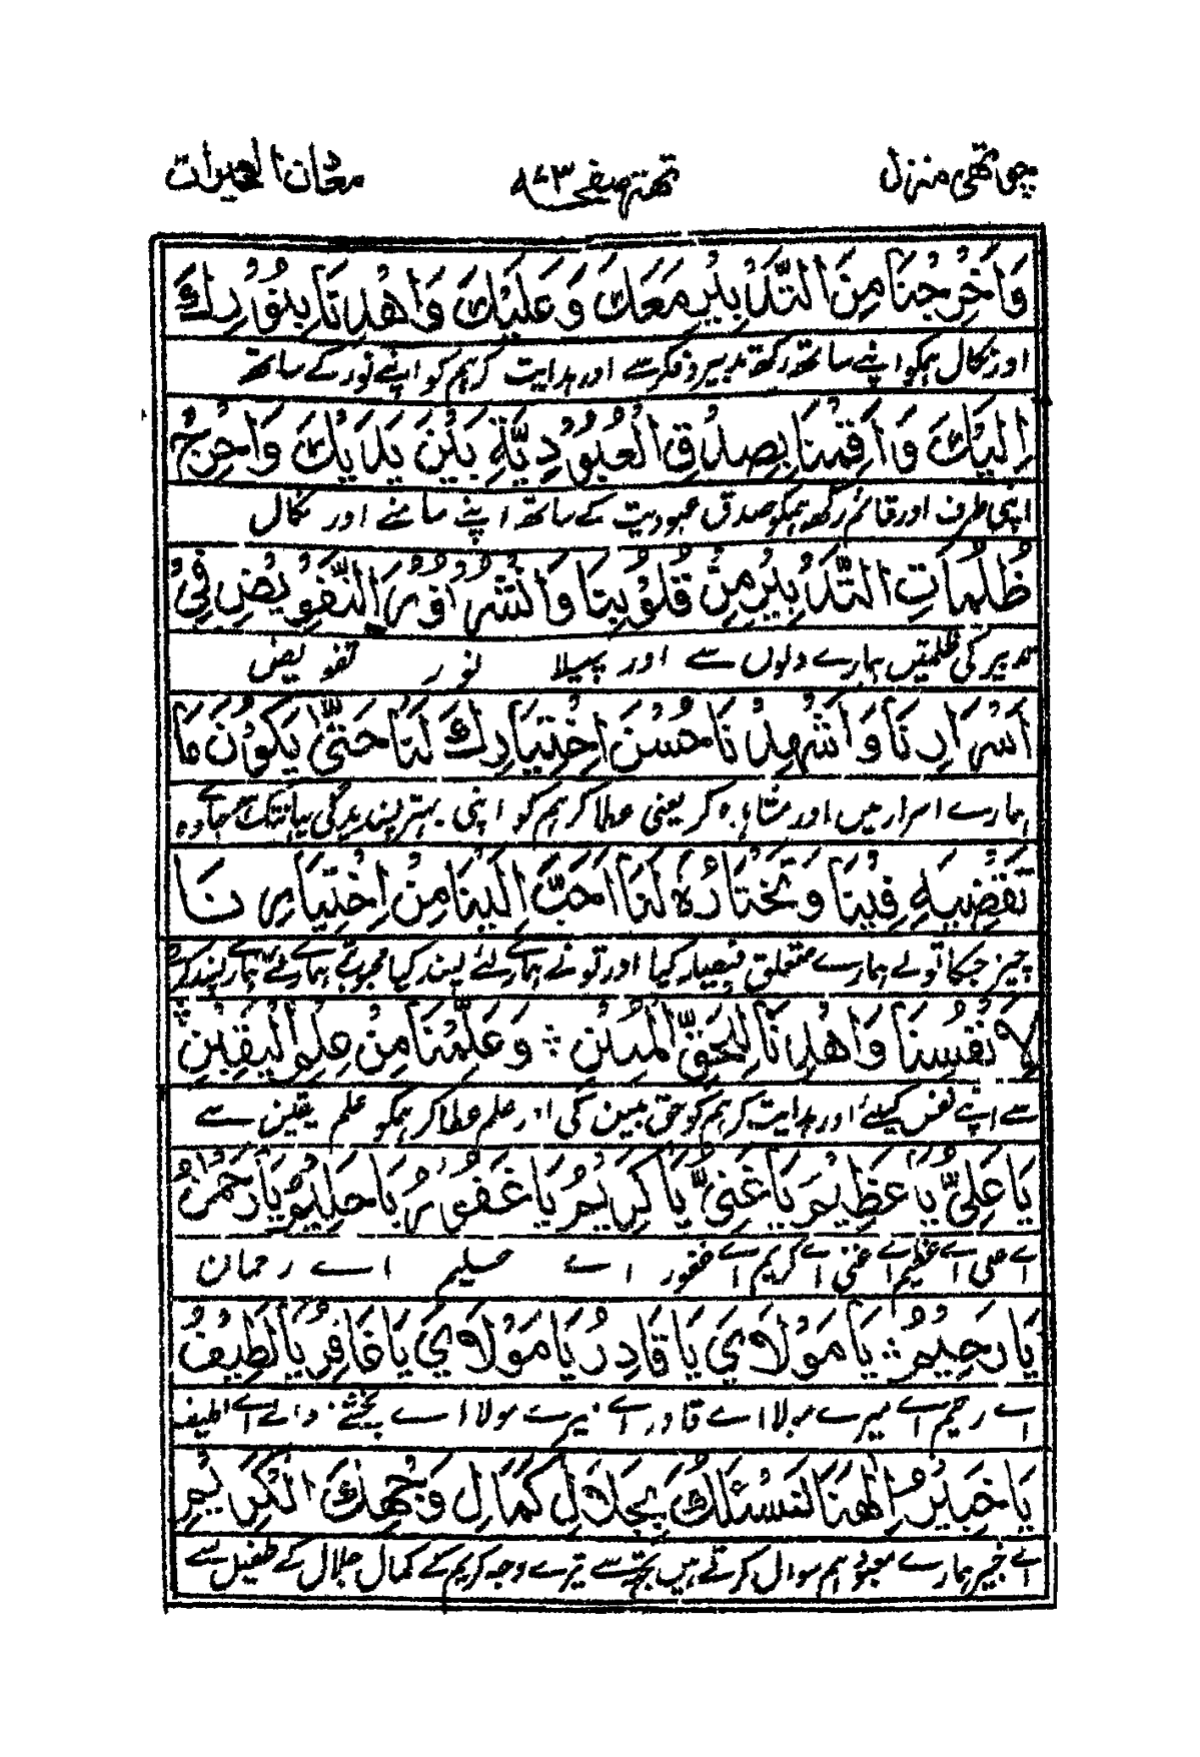 چوتھی منزل تتمہ صفحہ ۹۷۳ معدن الخیرات
وَاَخْرِجْنَا مِنَ التَّدْبِیْرِ مَعَكَ وَعَلَیْكَ وَاهْدِنَا بِنُوْرِكَ
اور نکال ہمکو اپنے ساتھ رکھ تدبیر و فکر سے اور ہدایت کر ہم کو اپنے نور کے ساتھ
اِلَیْكَ وَاَقِمْنَا بِصِدْقِ الْعُبُوْدِیَّةِ بَیْنَ یَدَیْكَ وَاَخْرِجْ
اپنی طرف اور قائم رکھ ہمکو صدق عبودیت کے ساتھ اپنے سامنے اور نکال
ظُلُمَاتِ التَّدْبِیْرِ مِنْ قُلُوْبِنَا وَانْشُرْ نُوْرَ التَّفْوِیْضِ فِیْ
تدبیر کی ظلمتیں ہمارے دلوں سے اور پھیلا نور تفویض
اَسْرَارِنَا وَاَشْهِدْنَا حُسْنَ اِخْتِیَارِكَ لَنَا حَتّٰی یَكُوْنَ مَا
ہمارے اسرار میں اور مشاہدہ کر یعنی عطا کر ہم کو اپنی بہتر پسندیدگی یہانتک کہ ہو جاوے وہ
تَقْضِیْهِ فِیْنَا وَتَخْتَارُهٗ لَنَا اَحَبَّ اِلَیْنَا مِنْ اِخْتِیَارِنَا
چیز جسکا تو نے ہمارے متعلق فیصلہ کیا اور تو نے ہمارے لئے پسند کیا محبوب ہمارے لئے ہمارے پسند کرنے
لِاَنْفُسِنَا وَاهْدِنَا لِلْحَقِّ الْمُبِیْنِ ؞ وَعَلِّمْنَا مِنْ عِلْمِ الْیَقِیْنِ ؞
سے اپنے نفس کیلئے اور ہدایت کر ہم کو حق مبین کی اور علم عطا کر ہمکو علم یقین سے
یَا عَلِیُّ یَا عَظِیْمُ یَا غَنِیُّ یَا كَرِیْمُ یَا غَفُوْرُ یَا حَلِیْمُ یَا رَحْمٰنُ
اے علی اے عظیم اے غنی اے کریم اے غفور اے حلیم اے رحمان
یَا رَحِیْمُ ؞ یَا مَوْلَایَ یَا قَادِرُ یَا مَوْلَایَ یَا غَافِرُ یَا لَطِیْفُ
اے رحیم اے میرے مولا اے قادر اے میرے مولا اے بخشنے والے اے لطیف
یَا خَبِیْرُ اِلٰهَنَا نَسْئَلُكَ بِجَلَالِ كَمَالِ وَجْهِكَ الْكَرِیْمِ
اے خبیر ہمارے معبود ہم سوال کرتے ہیں تجھ سے تیرے وجہ کریم کے کمال جلال کے طفیل سے